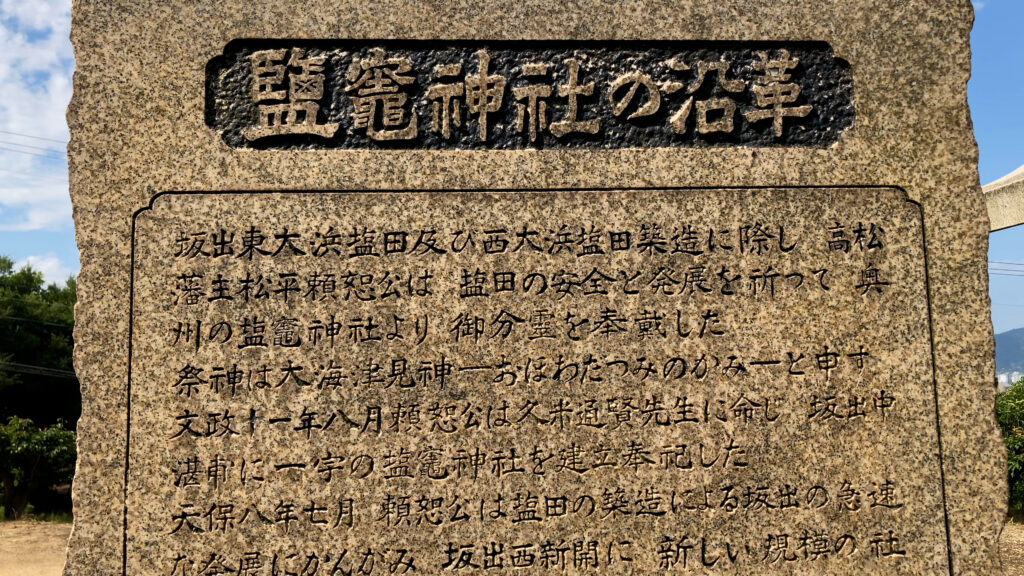 鹽竈神社の沿革
坂出東大浜塩田及び西大浜塩田築造に際し 高松
藩主松平頼恕公は 塩田の安全と発展を祈って 奥
州の塩竈神社より 御分霊を奉戴した
祭神は大海津見神―おほわたつみのかみ―と申す
文政十一年八月頼恕公は久米通賢先生に命じ 坂出中
湛甫に一宇の塩竈神社を建立奉祀した
天保八年七月 頼恕公は塩田の築造による坂出の急速
な発展にかんがみ 坂出西新開に 新しい規模の社